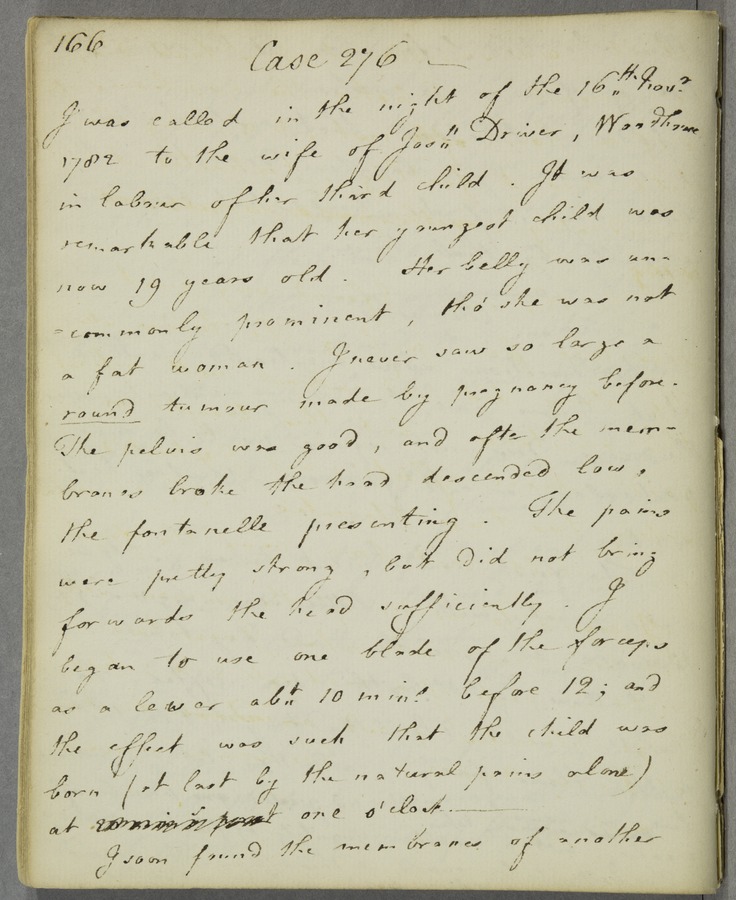 166
Case 276 —
I was called in the night of the 16th Novr
1782 to the wife of Josh Driver, Woodhouse
in labour of her third child. It was
remarkable that her youngest child was
now 19 years old. Her belly was un-
=commonly prominent, tho' she was not
a fat woman. I never saw so large a
round tumour made by pregnancy before.
The pelvis was good, and after the mem-
branes broke the head descended low,
the fontanelle presenting. The pains
were pretty strong, but did not bring
forwards the head sufficiently. I
began to use one blade of the forceps
as a lever abt 10 mins before 12; and
the effect was such that the child was
born (at last by the natural pains alone)
at one o'clock. —
I soon found the membranes of another